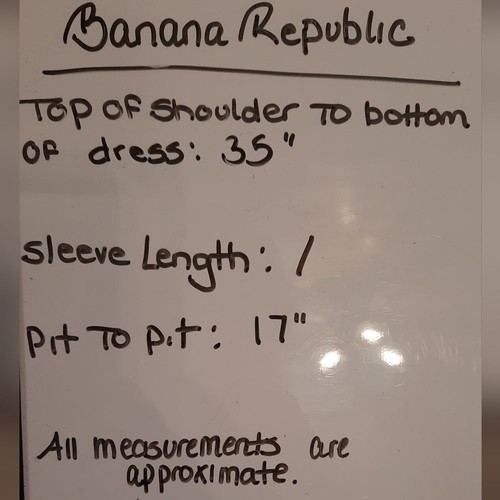 Banana Republic
Top of shoulder to bottom
of dress: 35"
Sleeve Length: /
Pit to pit: 17"
All measurements are
approximate.